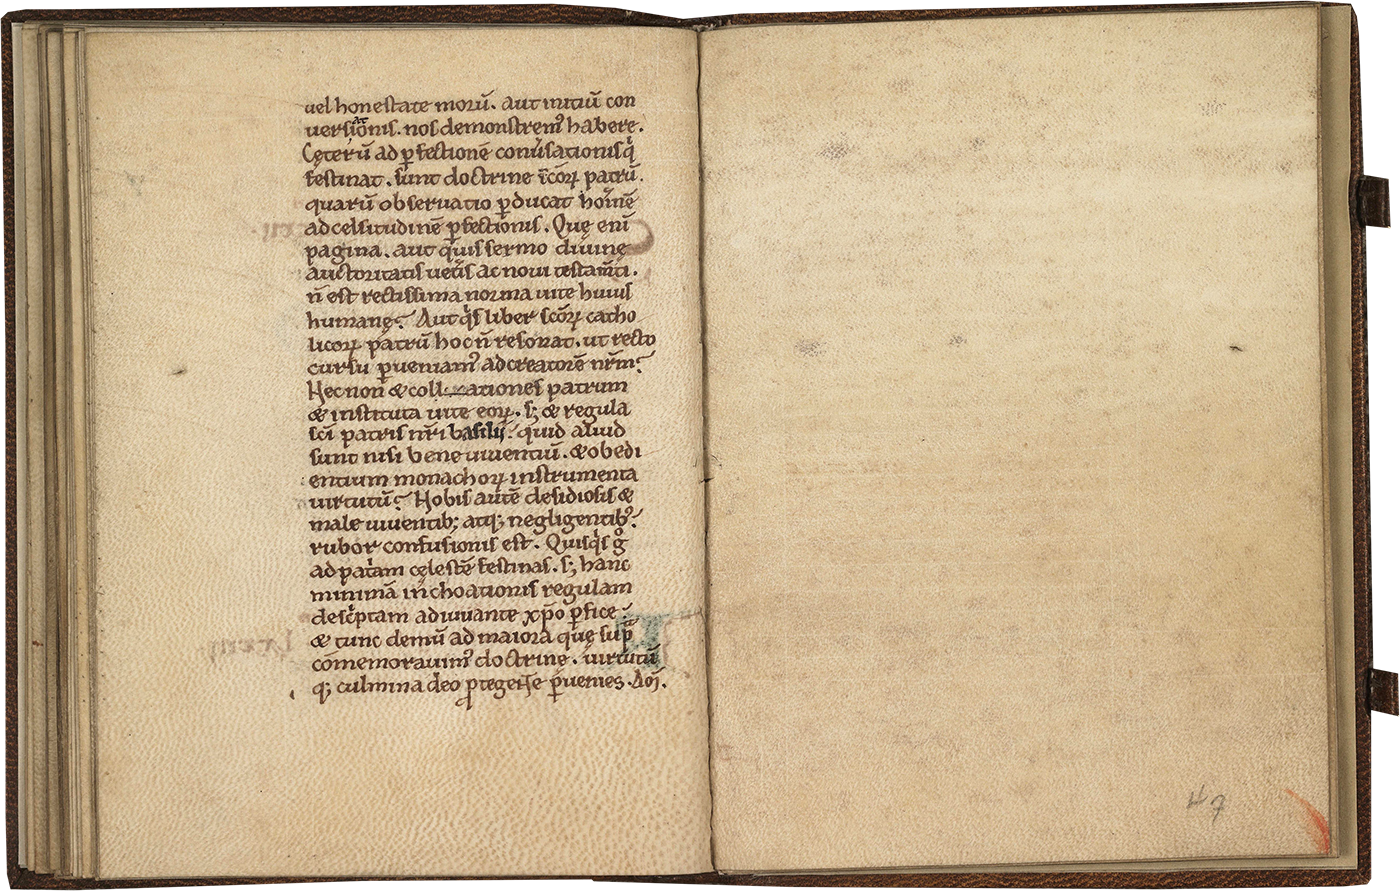 uel honestate morū. aut initiū con
uersationis. nos demonstrem᷒ habere.
Cęterū ad ꝑfectionē conuˀsationis qͥ
festinat. sunt doctrine scōꝝ patrū.
quarū obseruatio ꝑducat hoīnē
ad celsitudinē ꝑfectionis. Quę enī
pagina. aut qͥuis sermo diuinę
auctoritatis uetˀis ac noui testam̄ti.
n̄ est rectissima norma uite huius
humanę? Aut qͥs liber scōꝝ catho
licoꝝ patrū hoc n̄ resonat. ut recto
cursu ꝑueniam᷒ ad creatorē nr̄m?
Hec non & collationes patrum
& instituta uite eoꝝ. s; & regula
sci patris nr̄i basilij? quid aliud
sunt nisi bene uiuentiū. & obedi
entium monachoꝝ instrumenta
uirtutū? Nobis autē desidiosis &
male uiuentib; atq; negligentib᷒?
rubor confusionis est. Quisqͥs gͦ
ad patͥam cęlestē festinas. s; hanc
minimā inchoationis regulam
descͥptam adiuuante xp̄o ꝑfice?
& tunc demū ad maiora quę sup̄
cōmemorauim᷒ doctrinę. uirtutū
q; culmina deo ꝓtegente ꝑuenies. Am̄.
47